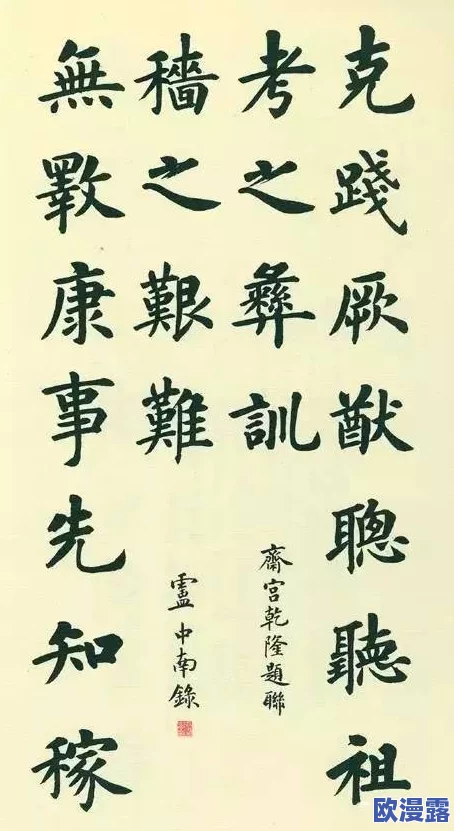 克踐厥猷聰聽祖
考之彝訓
齋宮乾隆題聯
無斁康事先知稼
穡之艱難
盧中南錄
欧漫露